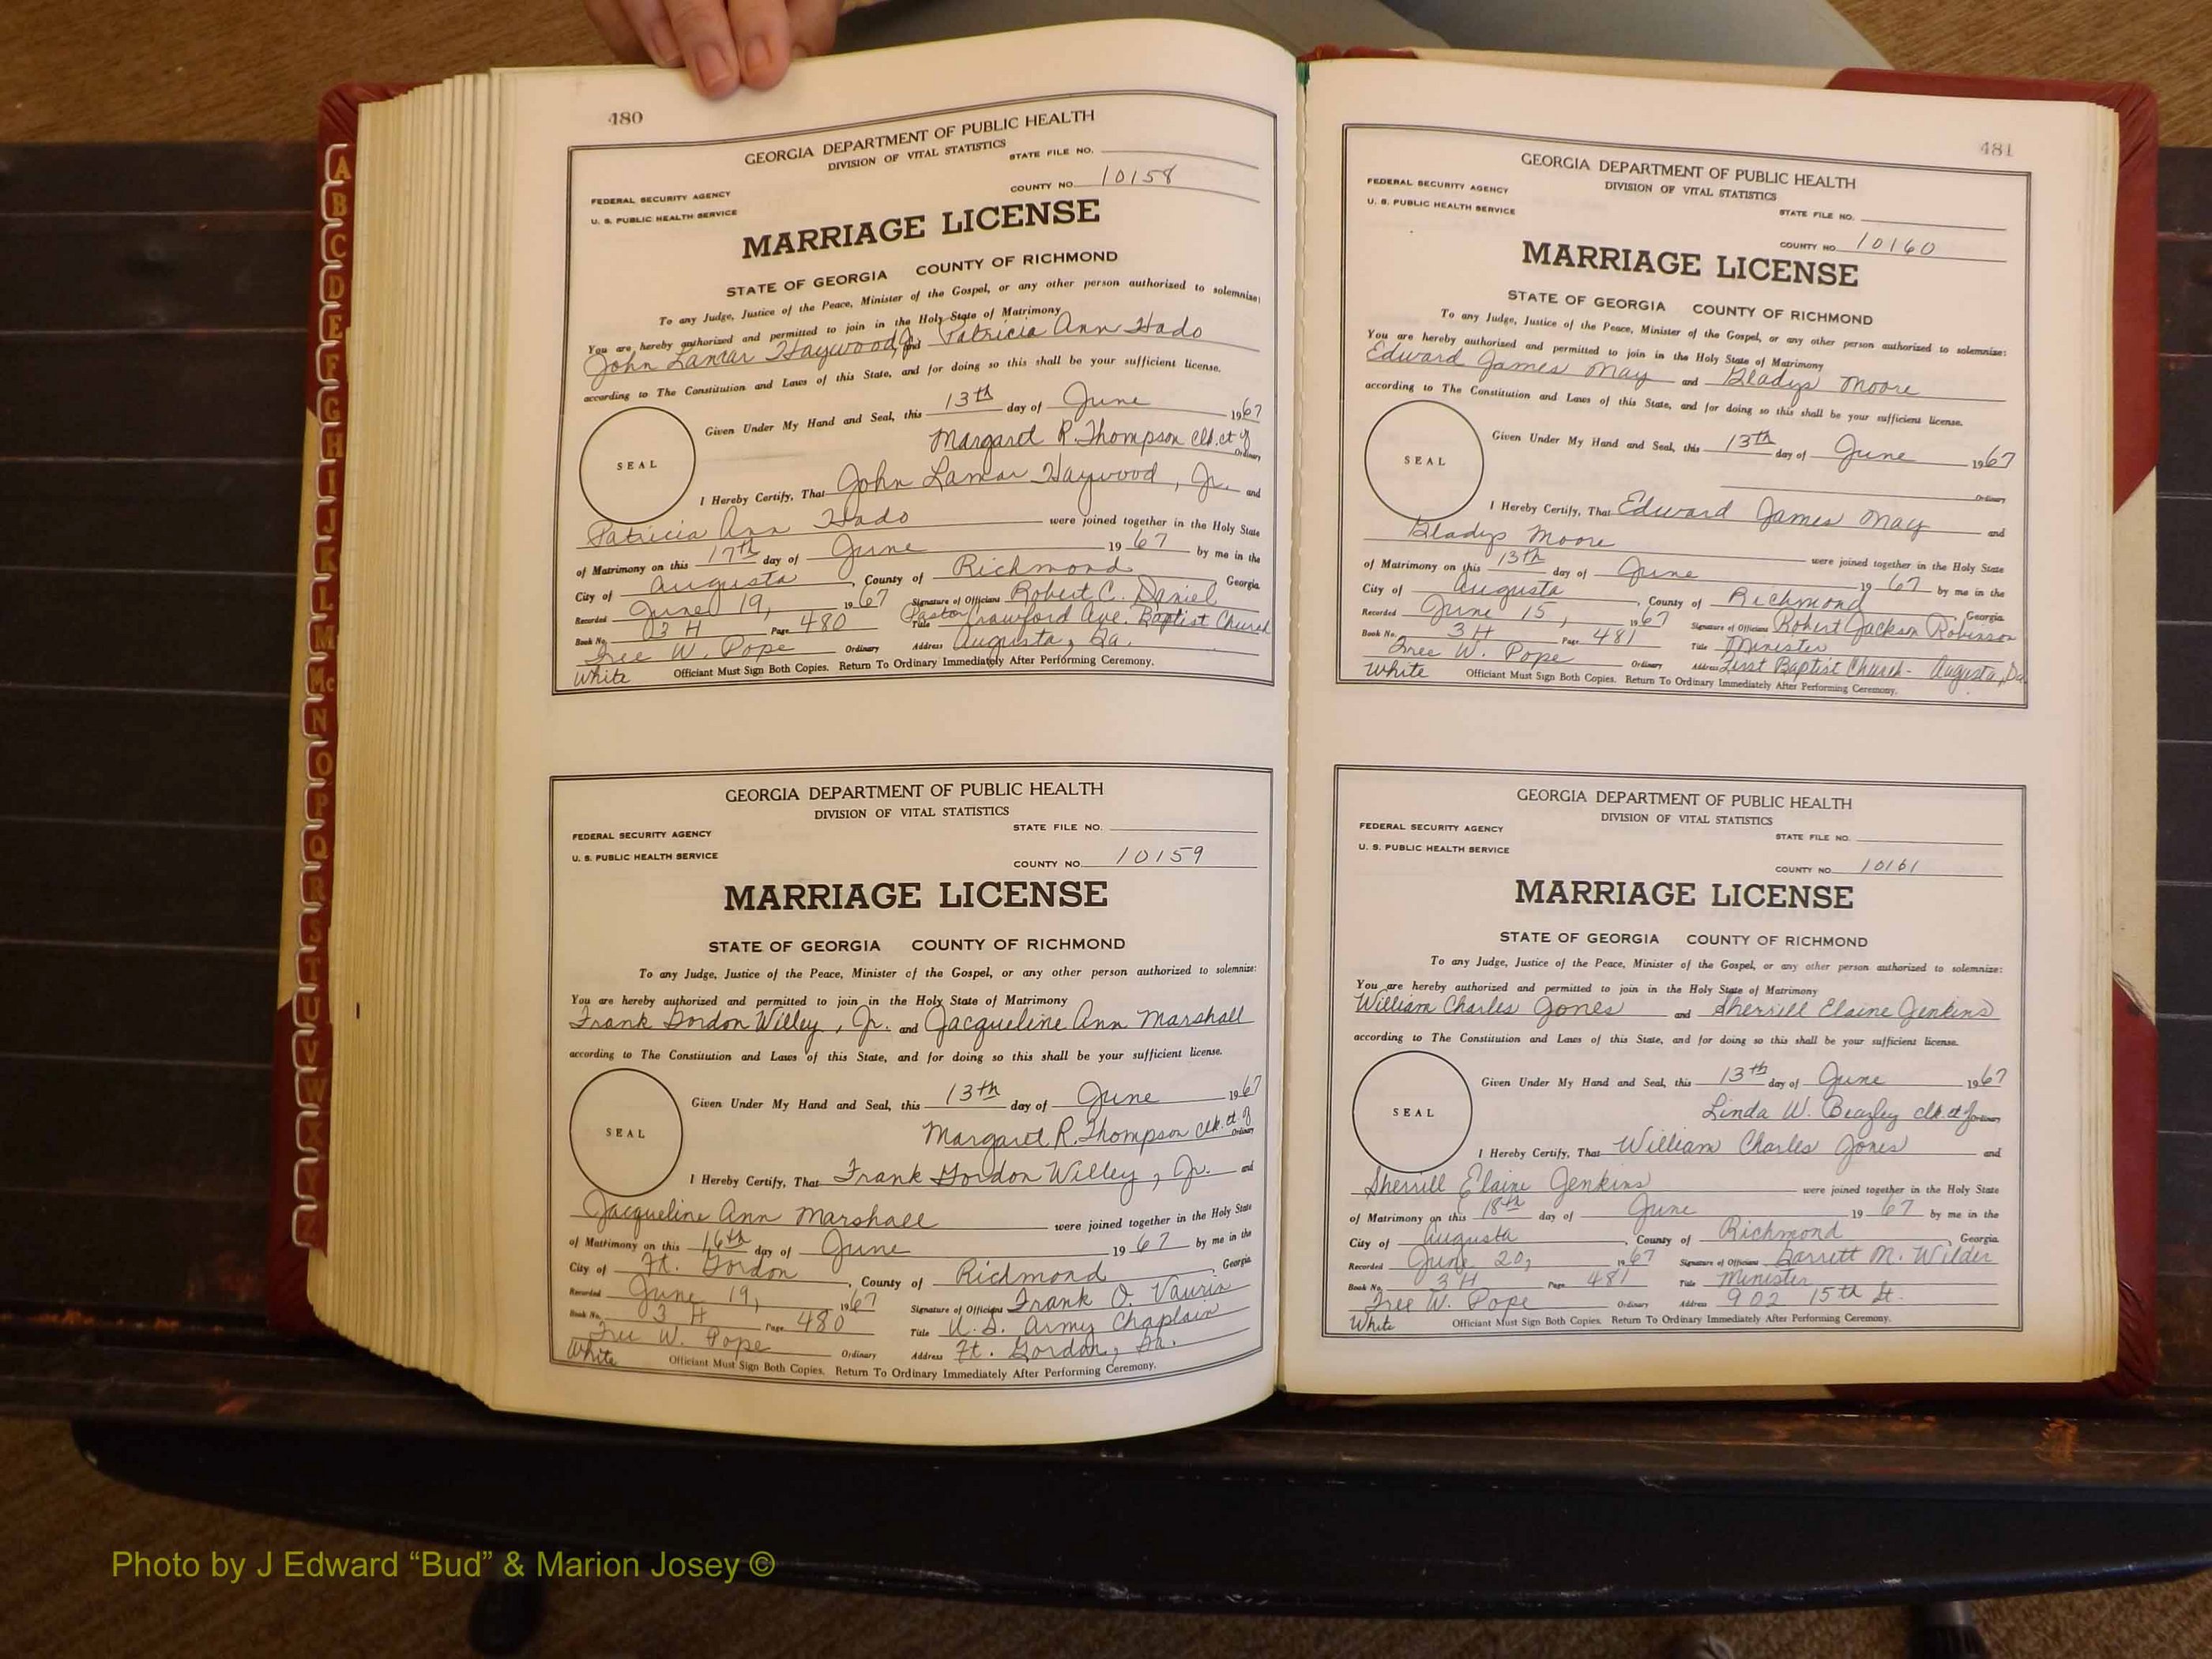 A
B
C
D
E
F
G
H
I
J
K
L
M
Mc
N
O
P
Q
R
S
T
U
V
W
X
Y
Z
480
GEORGIA DEPARTMENT OF PUBLIC HEALTH
DIVISION OF VITAL STATISTICS
STATE FILE NO.
FEDERAL SECURITY AGENCY
COUNTY NO. 10158
U. S. PUBLIC HEALTH SERVICE
MARRIAGE LICENSE
STATE OF GEORGIA COUNTY OF RICHMOND
To any Judge, Justice of the Peace, Minister of the Gospel, or any other person authorized to solemnize:
You are hereby authorized and permitted to join in the Holy State of Matrimony
John Lamar Haywood, Jr. and Patricia Ann Hado
according to The Constitution and Laws of this State, and for doing so this shall be your sufficient license.
Given Under My Hand and Seal, this 13th day of June 1967
Margaret R. Thompson clk. ct of
Ordinary
SEAL
I Hereby Certify, That John Lamar Haywood, Jr. and
Patricia Ann Hado were joined together in the Holy State
of Matrimony on this 17th day of June 1967 by me in the
City of Augusta, County of Richmond, Georgia
Recorded June 19, 1967 Signature of Officiant Robert C. Daniel
Book No. 03 H Page 480 Title Pastor Crawford Ave. Baptist Church
Free W. Pope Ordinary Address Augusta, Ga.
White Officiant Must Sign Both Copies. Return To Ordinary Immediately After Performing Ceremony.
GEORGIA DEPARTMENT OF PUBLIC HEALTH
DIVISION OF VITAL STATISTICS
STATE FILE NO.
FEDERAL SECURITY AGENCY
U. S. PUBLIC HEALTH SERVICE
COUNTY NO. 10159
MARRIAGE LICENSE
STATE OF GEORGIA COUNTY OF RICHMOND
To any Judge, Justice of the Peace, Minister of the Gospel, or any other person authorized to solemnize:
You are hereby authorized and permitted to join in the Holy State of Matrimony
Frank Gordon Willey, Jr. and Jacqueline Ann Marshall
according to The Constitution and Laws of this State, and for doing so this shall be your sufficient license.
Given Under My Hand and Seal, this 13th day of June 1967
Margaret R. Thompson clk. ct. of
Ordinary
SEAL
I Hereby Certify, That Frank Gordon Willey, Jr. and
Jacqueline Ann Marshall were joined together in the Holy State
of Matrimony on this 16th day of June 1967 by me in the
City of Ft. Gordon, County of Richmond, Georgia
Recorded June 19, 1967 Signature of Officiant Frank O. Vavrin
Book No. 03 H Page 480 Title U.S. Army Chaplain
Free W. Pope Ordinary Address Ft. Gordon, Ga.
White Officiant Must Sign Both Copies. Return To Ordinary Immediately After Performing Ceremony.
481
GEORGIA DEPARTMENT OF PUBLIC HEALTH
DIVISION OF VITAL STATISTICS
FEDERAL SECURITY AGENCY
U. S. PUBLIC HEALTH SERVICE
STATE FILE NO.
COUNTY NO. 10160
MARRIAGE LICENSE
STATE OF GEORGIA COUNTY OF RICHMOND
To any Judge, Justice of the Peace, Minister of the Gospel, or any other person authorized to solemnize:
You are hereby authorized and permitted to join in the Holy State of Matrimony
Edward James May and Gladys Moore
according to The Constitution and Laws of this State, and for doing so this shall be your sufficient license.
Given Under My Hand and Seal, this 13th day of June 1967
Ordinary
SEAL
I Hereby Certify, That Edward James May and
Gladys Moore were joined together in the Holy State
of Matrimony on this 13th day of June 1967 by me in the
City of Augusta, County of Richmond, Georgia
Recorded June 15, 1967 Signature of Officiant Robert Jackson Robinson
Book No. 3 H Page 481 Title Minister
Free W. Pope Ordinary Address First Baptist Church - Augusta, Ga.
White Officiant Must Sign Both Copies. Return To Ordinary Immediately After Performing Ceremony.
GEORGIA DEPARTMENT OF PUBLIC HEALTH
DIVISION OF VITAL STATISTICS
FEDERAL SECURITY AGENCY
STATE FILE NO.
U. S. PUBLIC HEALTH SERVICE
COUNTY NO. 10161
MARRIAGE LICENSE
STATE OF GEORGIA COUNTY OF RICHMOND
To any Judge, Justice of the Peace, Minister of the Gospel, or any other person authorized to solemnize:
You are hereby authorized and permitted to join in the Holy State of Matrimony
William Charles Jones and Sherrill Elaine Jenkins
according to The Constitution and Laws of this State, and for doing so this shall be your sufficient license.
Given Under My Hand and Seal, this 13th day of June 1967
Linda W. Beazley clk. ct of Ordinary
SEAL
I Hereby Certify, That William Charles Jones and
Sherrill Elaine Jenkins were joined together in the Holy State
of Matrimony on this 18th day of June 1967 by me in the
City of Augusta, County of Richmond, Georgia
Recorded June 20, 1967 Signature of Officiant Garrett M. Wilder
Book No. 3 H Page 481 Title Minister
Free W. Pope Ordinary Address 902 15th St.
White Officiant Must Sign Both Copies. Return To Ordinary Immediately After Performing Ceremony.
Photo by J Edward “Bud” & Marion Josey ©